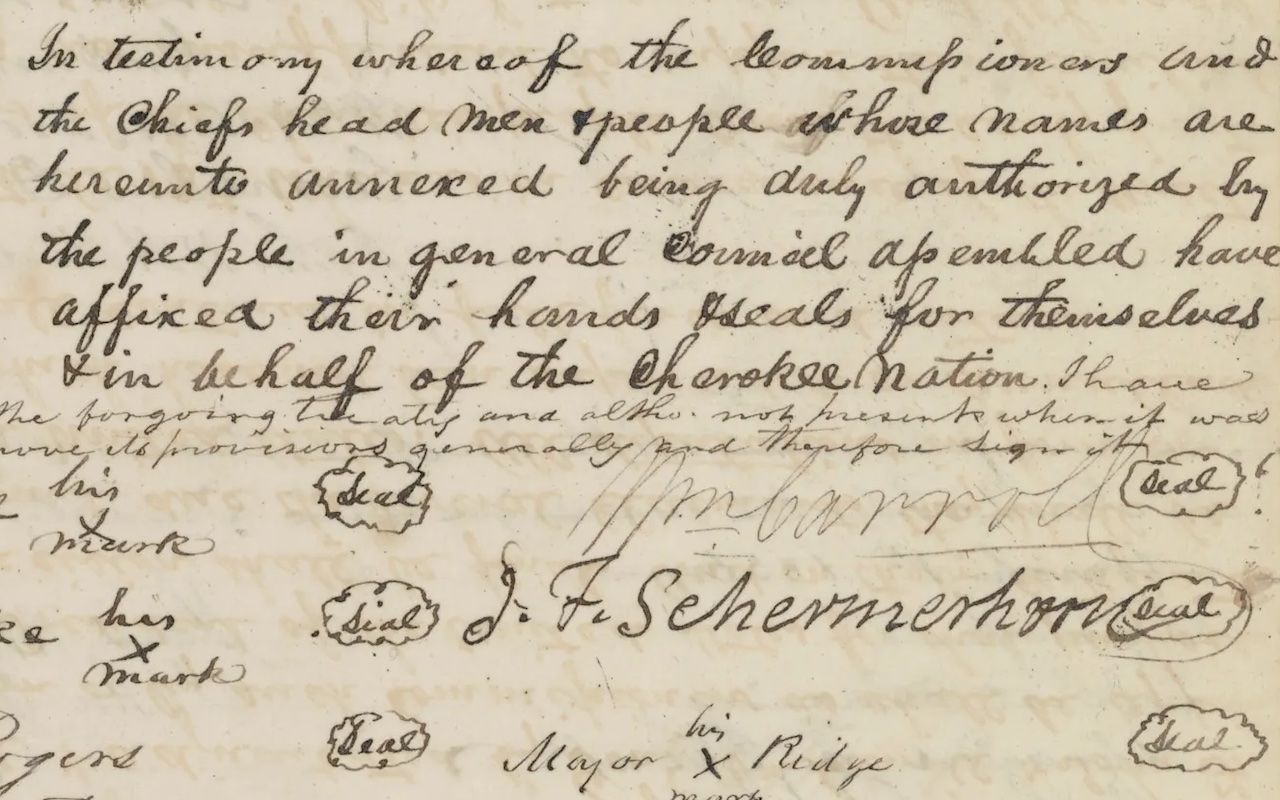 In testimony whereof the Commissioners and
the Chiefs head men & people whose names are
hereunto annexed being duly authorized by
the people in general Council assembled have
affixed their hands & seals for themselves
& in behalf of the Cherokee Nation. I have
the forgoing treaty and altho. not present when it was
rove its provisions generally and therefore sign it
his Seal Wm Carroll Seal
mark
ke his Seal J. F. Schermerhorn Seal
mark
Rogers Seal Major his Ridge Seal
mark